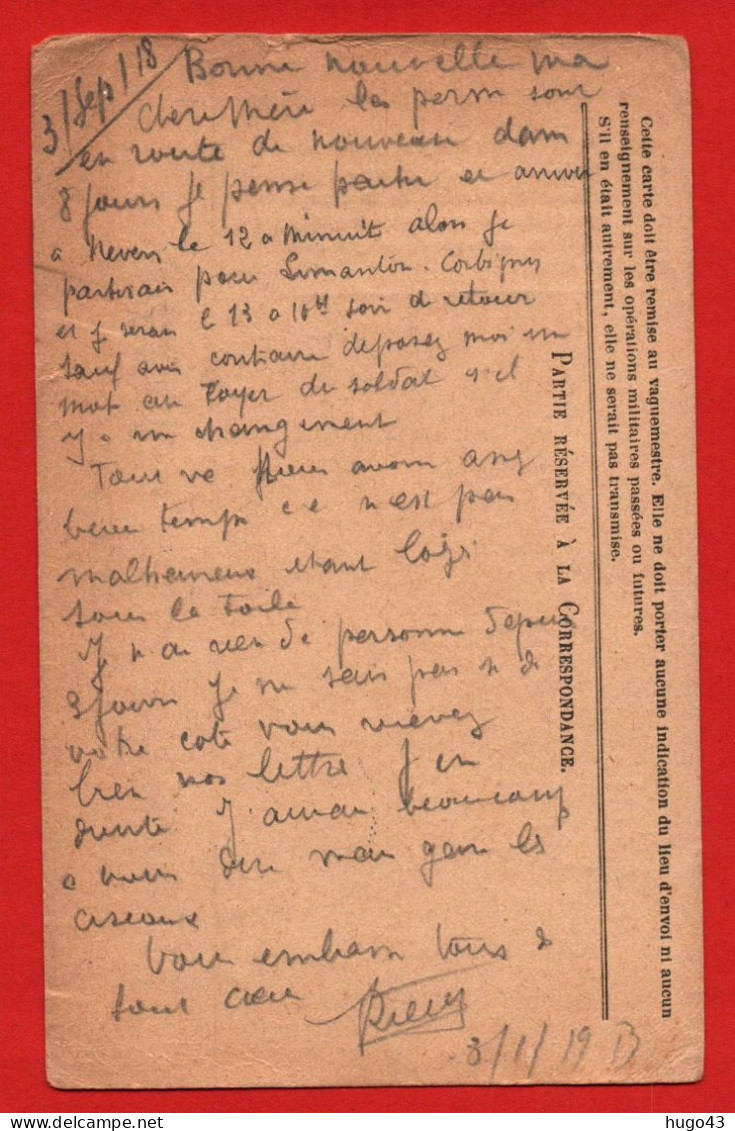 3/Sep/18
Bonne nouvelle ma
chere Mère les perm sont
en route de nouveau dans
8 jours je pense partir et arriver
a Nevers le 12 a Minuit alors je
partirais pour Limanton - Corbigny
et j serai le 13 a 10h soir de retour
sauf avis contraire deposez moi un
mot au Foyer du soldat s il
y a un changement
Tout va bien avons assez
beau temps ce n'est pas
malheureux etant logé
sous la toile
J n ai rien de personne depuis
3 jours je ne sais pas si de
votre cote vous recevez
bien mes lettre j en
doute J aurai beaucoup
a vous dire mais gare les
ciseaux
Vous embrasse tous de
tout cœur
3/1/19
PARTIE RÉSERVÉE À LA CORRESPONDANCE.
Cette carte doit être remise au vaguemestre. Elle ne doit porter aucune indication du lieu d'envoi ni aucun
renseignement sur les opérations militaires passées ou futures.
S'il en était autrement, elle ne serait pas transmise.
hugo43